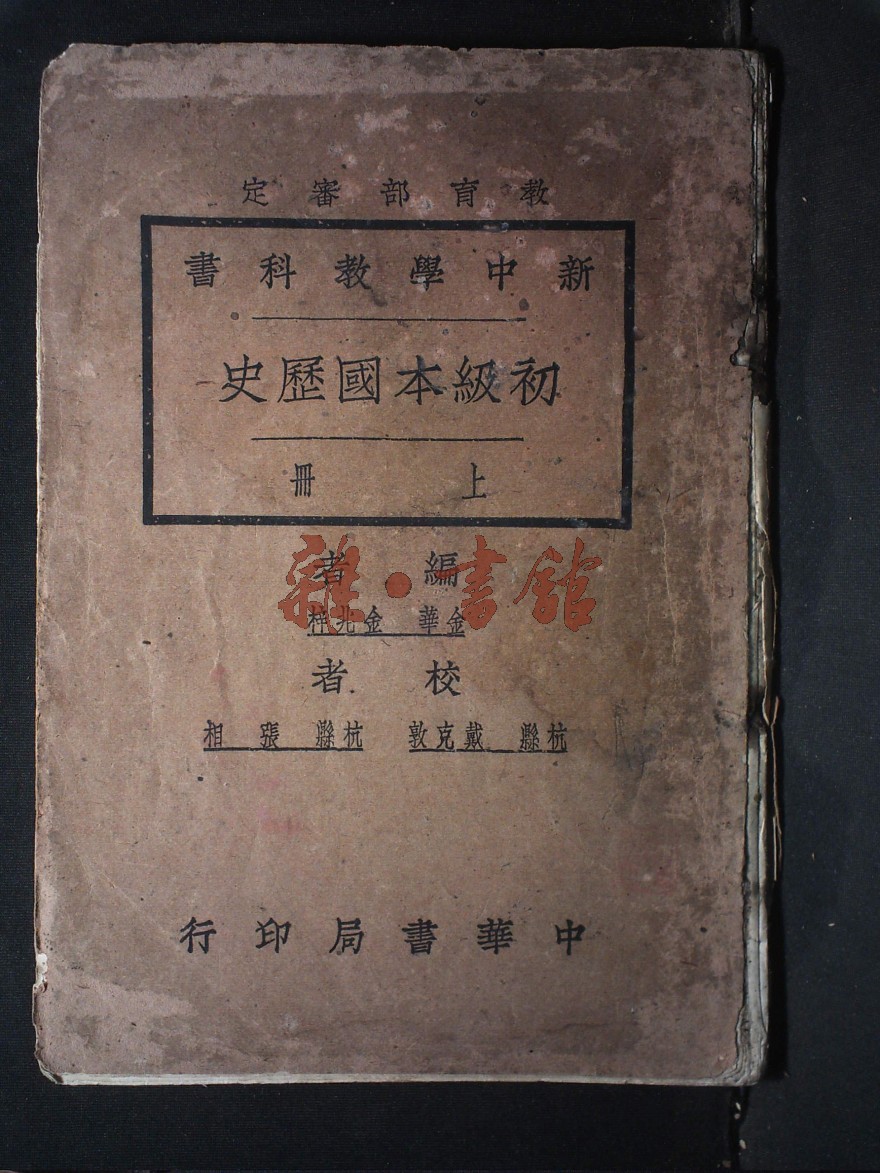 教育部審定
新中學教科書
初級本國歷史
上冊
編者
金華 金兆梓
校者
杭縣 戴克敦 杭縣 張相
中華書局印行
雜·書館